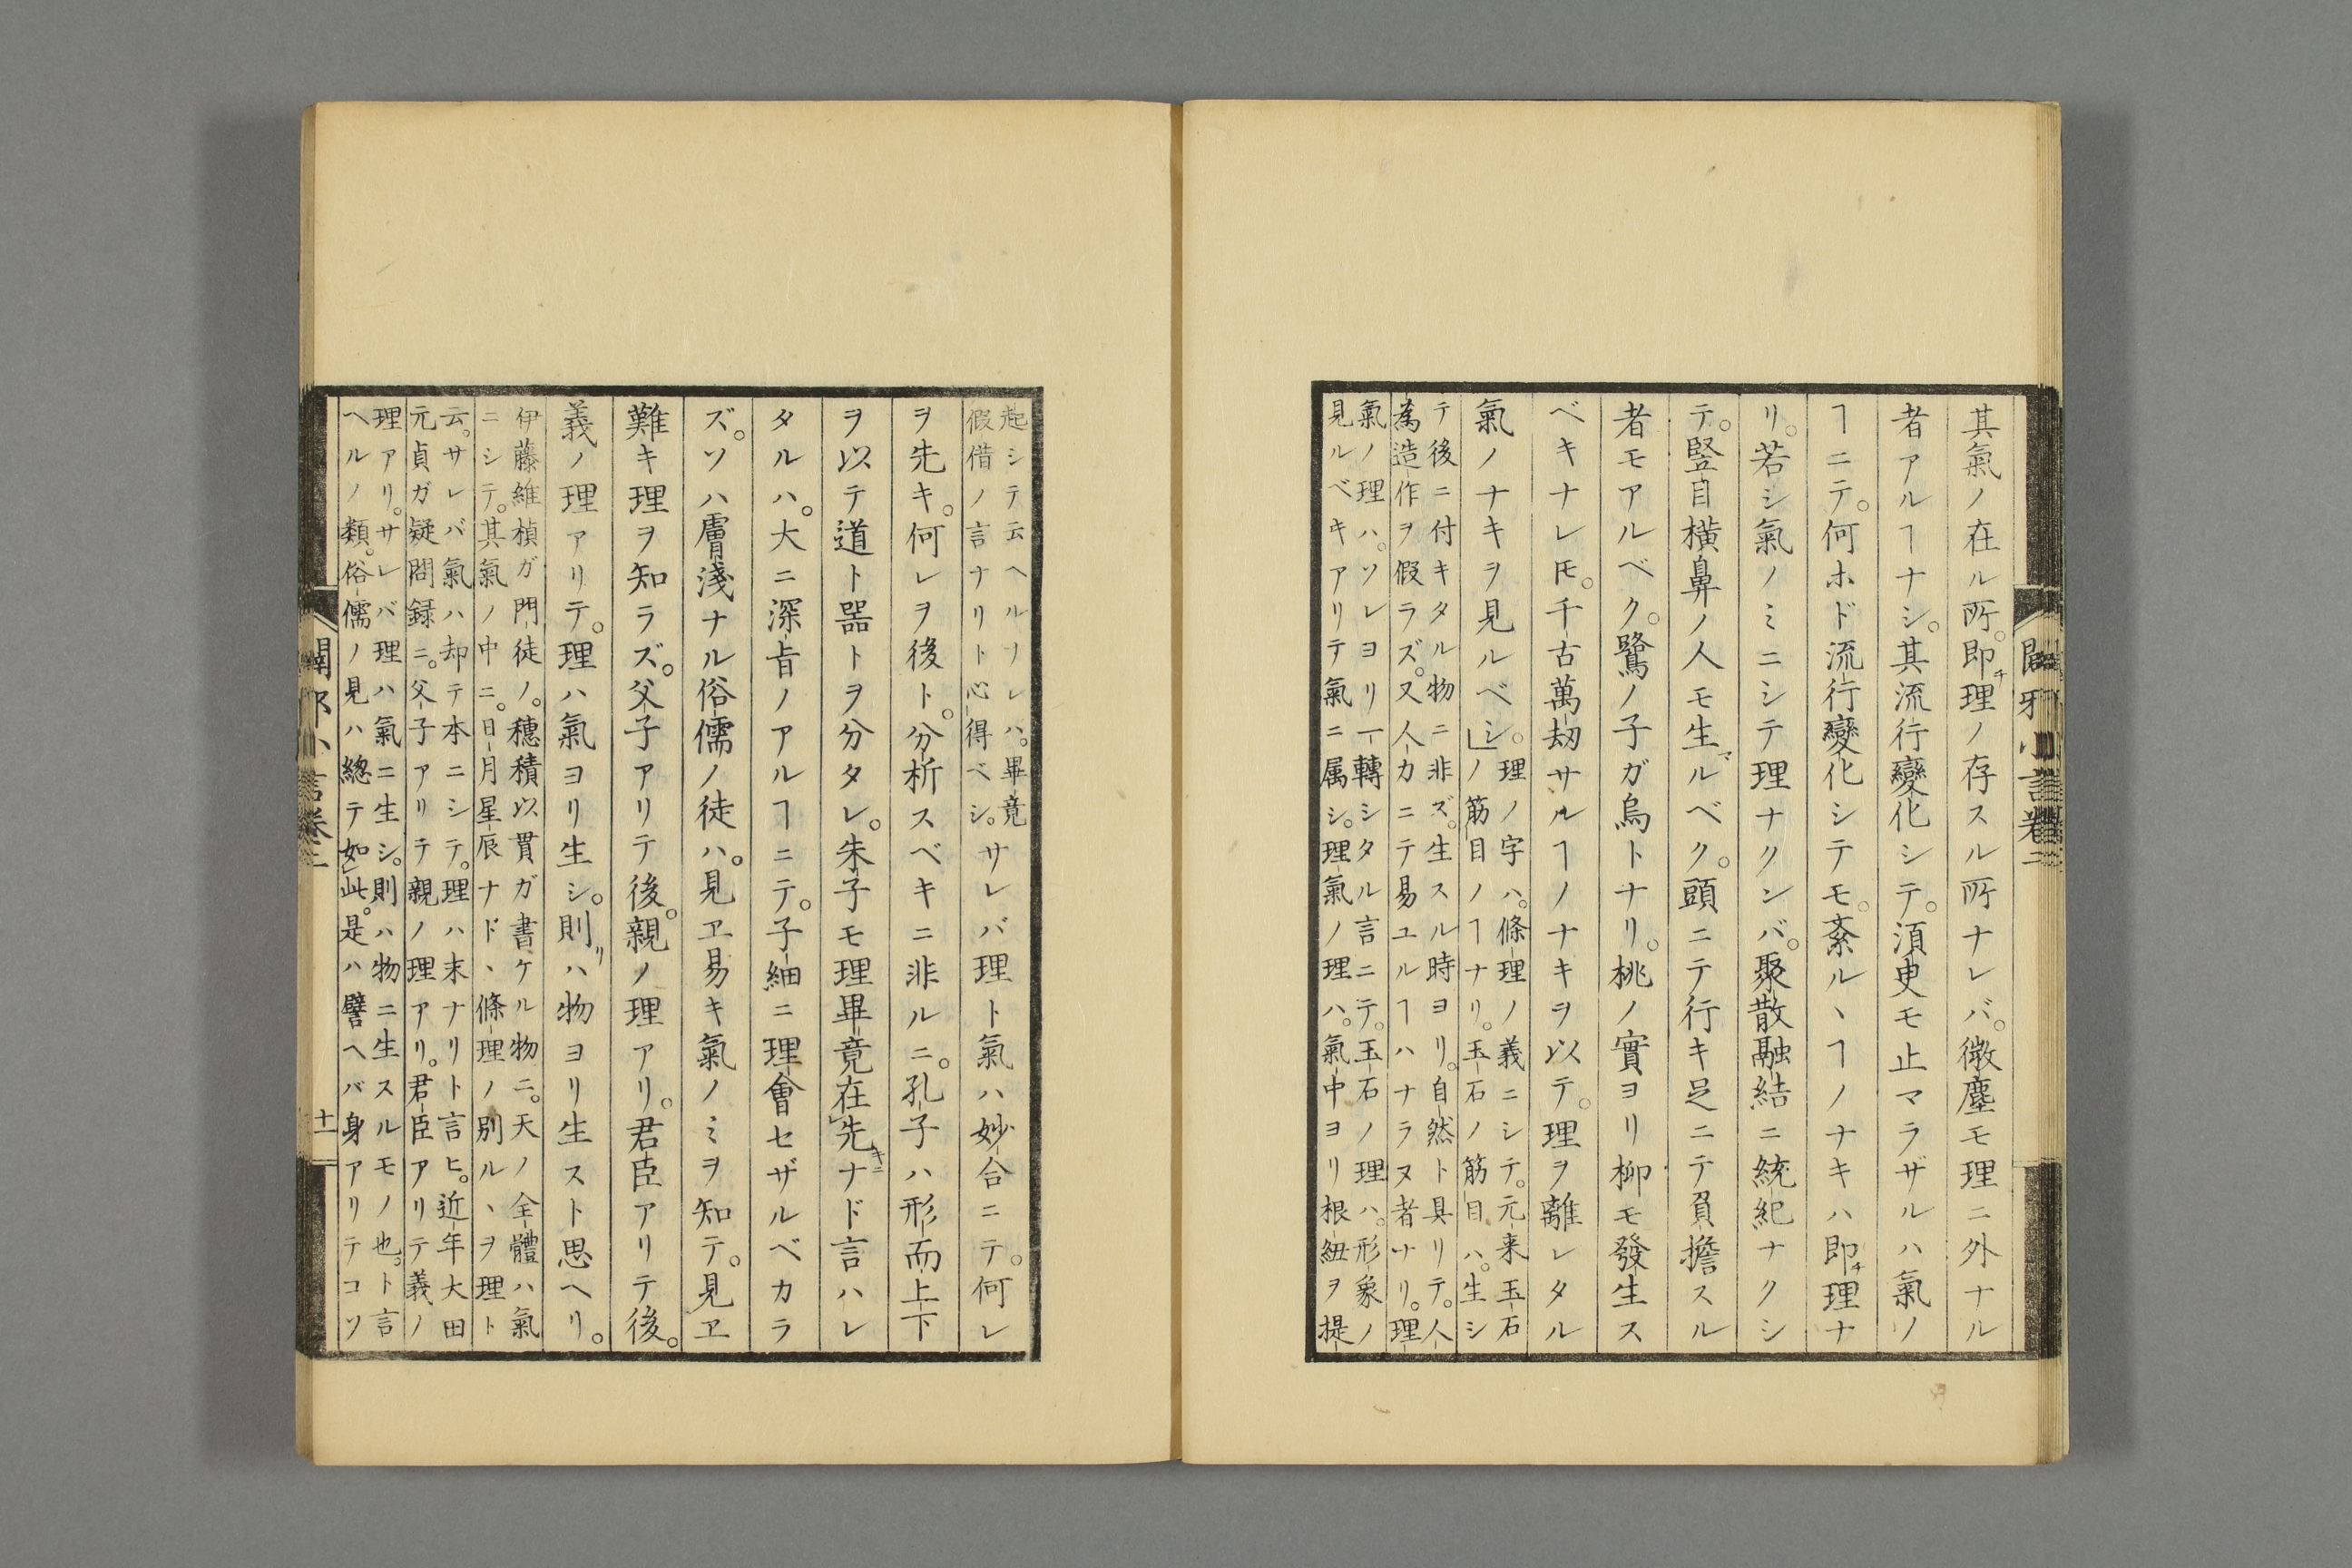 其氣ノ在ル所。即チ理ノ存スル所ナレバ。微塵モ理ニ外ナル
者アルヿナシ。其流行變化シテ。須臾モ止マラザルハ氣ノ
ヿニテ。何ホド流行變化シテモ。紊ルヽヿノナキハ即チ理ナ
リ。若シ氣ノミニシテ理ナクンバ。聚散融結ニ統紀ナクシ
テ。竪目橫鼻ノ人モ生マルベク。頭ニテ行キ足ニテ負擔スル
者モアルベク。鷺ノ子ガ烏トナリ。桃ノ實ヨリ柳モ發生ス
ベキナレ𪜈。千古萬劫サルヿノナキヲ以テ。理ヲ離レタル
氣ノナキヲ見ルベシ。
理ノ字ハ。條理ノ義ニシテ。元来玉石
ノ筋目ノヿナリ。玉石ノ筋目ハ。生シ
テ後ニ付キタル物ニ非ズ。生スル時ヨリ。自然ト具リテ。人
為造作ヲ假ラズ。又人力ニテ易ユルヿハナラヌ者ナリ。理
氣ノ理ハ。ソレヨリ一轉シタル言ニテ。玉石ノ理ハ。形象ノ
見ルベキアリテ氣ニ属シ。理氣ノ理ハ。氣中ヨリ根紐ヲ提
闢邪小言卷二
起シテ云ヘルナレハ。畢竟
假借ノ言ナリト心得ベシ。
サレバ理ト氣ハ妙合ニテ。何レ
ヲ先キ。何レヲ後ト。分析スベキニ非ルニ。孔子ハ形而上下
ヲ以テ道ト噐トヲ分タレ。朱子モ理畢竟在先キニナド言ハレ
タルハ。大ニ深旨ノアルヿニテ。子細ニ理會セザルベカラ
ズ。ソハ膚淺ナル俗儒ノ徒ハ。見ヱ易キ氣ノミヲ知テ。見ヱ
難キ理ヲ知ラズ。父子アリテ後。親ノ理アリ。君臣アリテ後。
義ノ理アリテ。理ハ氣ヨリ生シ。則リハ物ヨリ生スト思ヘリ。
伊藤維楨ガ門徒ノ。穗積以貫ガ書ケル物ニ。天ノ全體ハ氣
ニシテ。其氣ノ中ニ。日月星辰ナドヽ條理ノ別ルヽヲ理ト
云。サレバ氣ハ却テ本ニシテ。理ハ末ナリト言ヒ。近年大田
元貞ガ疑問録ニ。父子アリテ親ノ理アリ。君臣アリテ義ノ
理アリ。サレバ理ハ氣ニ生シ。則ハ物ニ生スルモノ也。ト言
ヘルノ類。俗儒ノ見ハ總テ如此。是ハ譬ヘバ身アリテコソ
闢邪小言卷二 十一